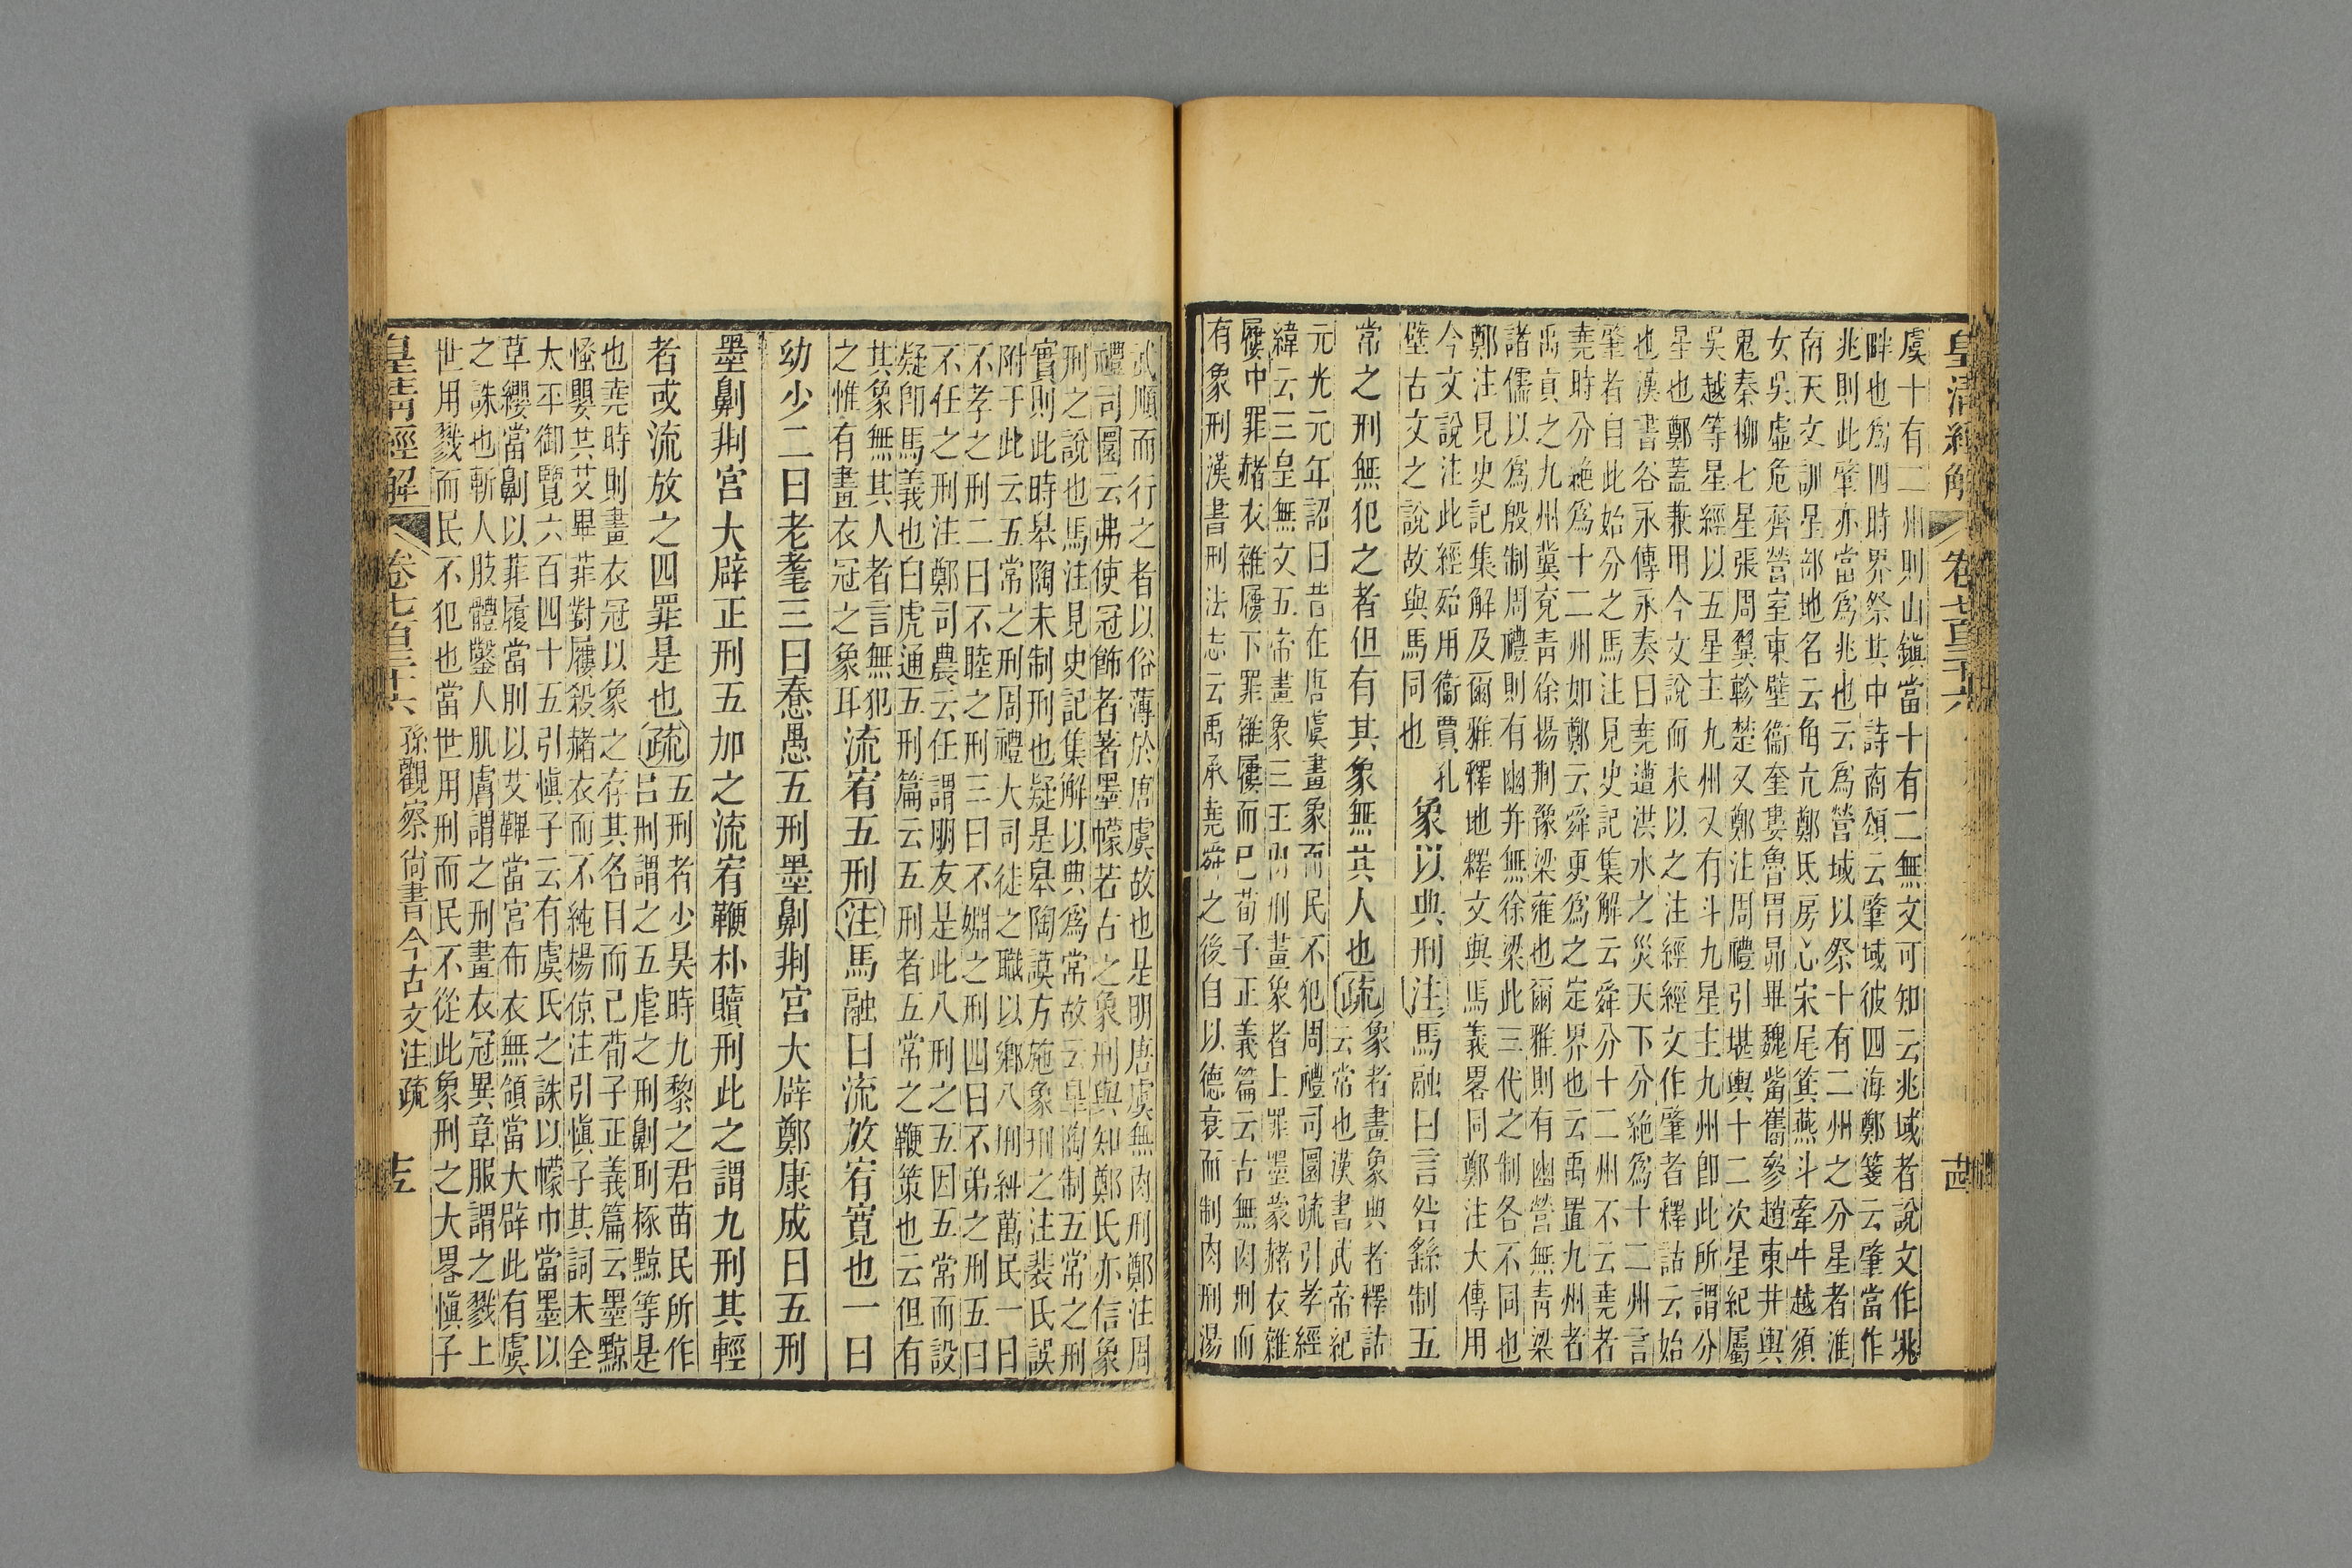 皇清經解
卷七百三十六
虞十有二州則山鎭當十有二無文可知云兆域者說文作垗
畔也爲四時界祭其中詩商頌云肇域彼四海鄭箋云肇當作
兆則此肇亦當爲兆也云爲營域以祭十有二州之分星者淮
南天文訓星部地名云角亢鄭氐房心宋尾箕燕斗牽牛越須
女吳虛危齊營室東壁衞奎婁魯胃昴畢魏觜觿參趙東井輿
鬼秦柳七星張周翼軫楚又鄭注周禮引堪輿十二次星紀屬
吳越等星經以五星主九州又有斗九星主九州卽此所謂分
星也鄭蓋兼用今文說而未以之注經經文作肇者釋詁云始
也漢書谷永傳永奏曰堯遭洪水之災天下分絶爲十二州言
肇者自此始分之馬注見史記集解云舜分十二州不云堯者
堯時分絶爲十二州如鄭云舜更爲之定界也云禹置九州者
禹貢之九州冀兗靑徐揚荆豫梁雍也爾雅則有幽營無靑梁
諸儒以爲殷制周禮則有幽幷無徐梁此三代之制各不同也
鄭注見史記集解及爾雅釋地釋文與馬義畧同鄭注大傳用
今文說注此經殆用衞賈孔
壁古文之說故與馬同也
象以典刑注馬融曰言咎繇制五
常之刑無犯之者但有其象無其人也疏
象者畫象典者釋詁
云常也漢書武帝紀
元光元年詔曰昔在唐虞畫象而民不犯周禮司圜疏引孝經
緯云三皇無文五帝畫象三王肉刑畫象者上罪墨蒙赭衣雜
屨中罪赭衣雜屨下罪雜屨而已荀子正義篇云古無肉刑而
有象刑漢書刑法志云禹承堯舜之後自以德衰而制肉刑湯
武順而行之者以俗薄於唐虞故也是明唐虞無肉刑鄭注周
禮司圜云弗使冠飾者著墨幪若古之象刑與知鄭氏亦信象
刑之說也馬注見史記集解以典爲常故云臯陶制五常之刑
實則此時臯陶未制刑也疑是臯陶謨方施象刑之注裴氏誤
附于此云五常之刑周禮大司徒之職以鄉八刑糾萬民一曰
不孝之刑二曰不睦之刑三曰不婣之刑四曰不弟之刑五曰
不任之刑注鄭司農云任謂朋友是此八刑之五因五常而設
疑卽馬義也白虎通五刑篇云五刑者五常之鞭策也云但有
其象無其人者言無犯
之惟有畫衣冠之象耳
流宥五刑注馬融曰流放宥寬也一曰
幼少二曰老耄三曰惷愚五刑墨劓剕宮大辟鄭康成曰五刑
墨劓剕宮大辟正刑五加之流宥鞭朴贖刑此之謂九刑其輕
者或流放之四罪是也疏
五刑者少昊時九黎之君苗民所作
呂刑謂之五虐之刑劓刵椓黥等是
也堯時則畫衣冠以象之存其名曰而已荀子正義篇云墨黥
慅嬰共艾畢菲對屨殺赭衣而不純楊倞注引愼子其詞未全
太平御覽六百四十五引愼子云有虞氏之誅以幪巾當墨以
草纓當劓以菲履當刖以艾鞸當宮布衣無領當大辟此有虞
之誅也斬人肢體鑿人肌膚謂之刑畫衣冠異章服謂之戮上
世用戮而民不犯也當世用刑而民不從此象刑之大畧愼子
皇清經解
卷七百三十六
孫觀察尙書今古文注疏